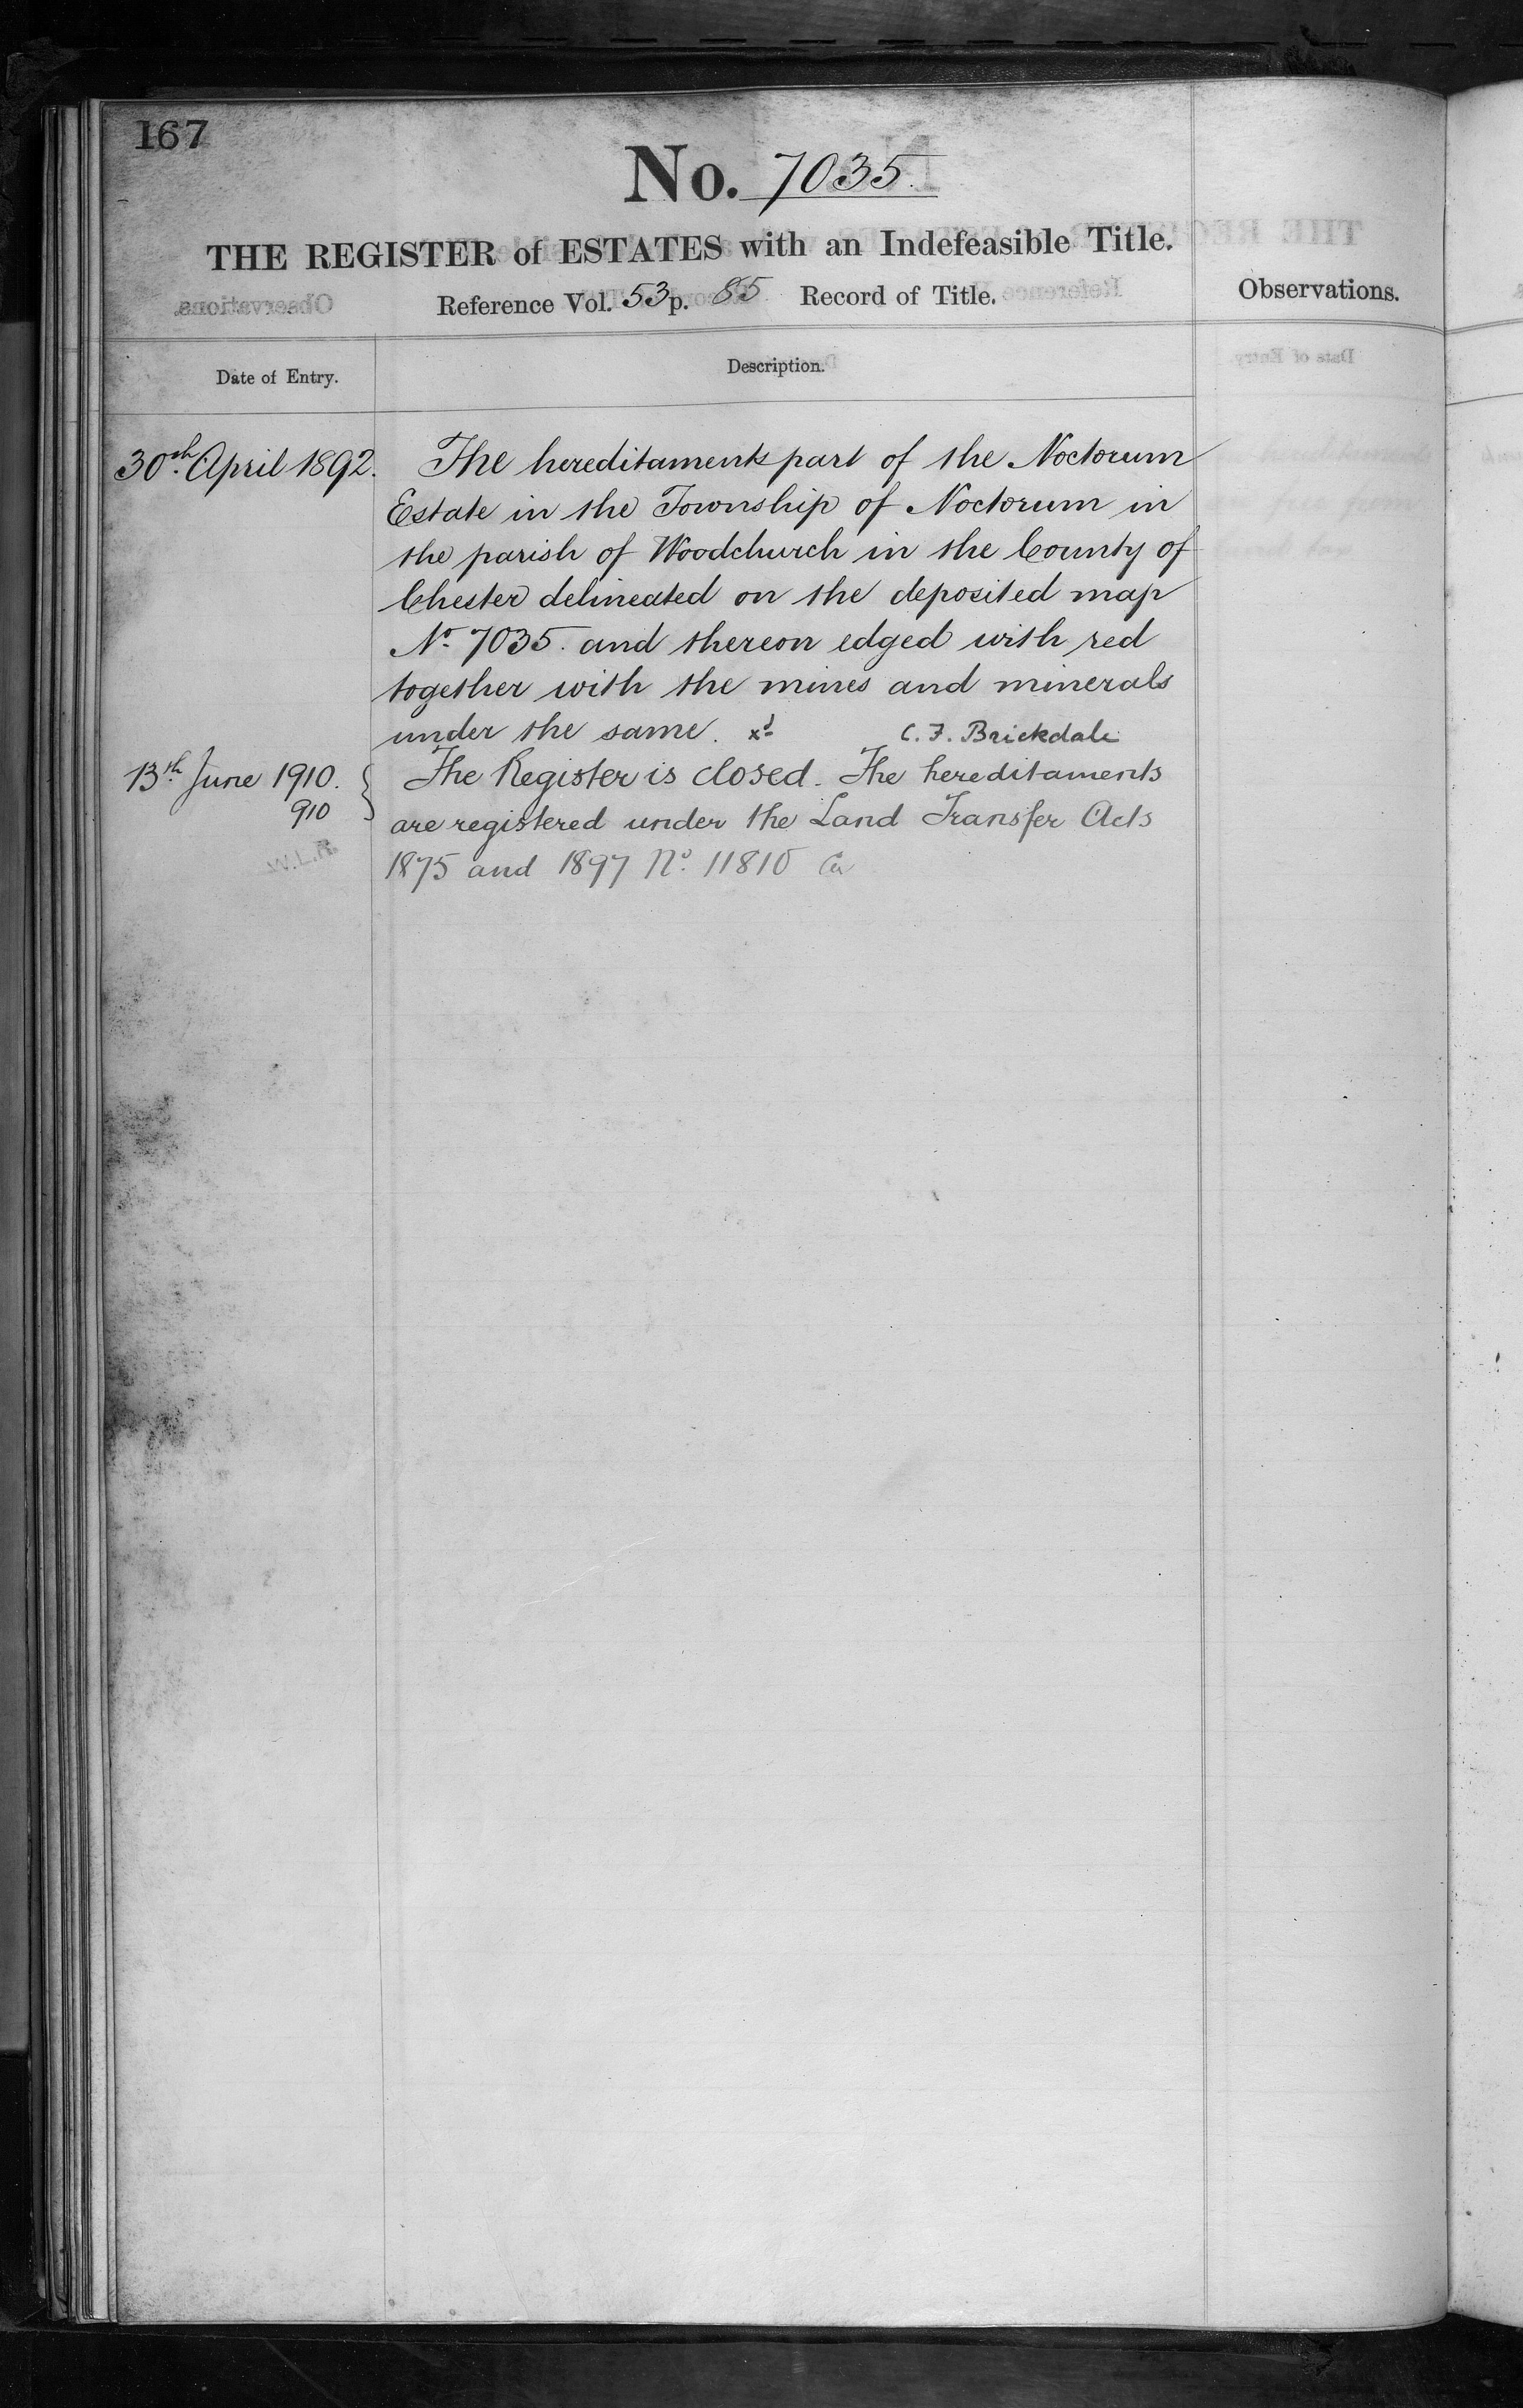 167
No. 7035.
THE REGISTER of ESTATES with an Indefeasible Title.
Reference Vol. 53 p. 85 Record of Title.
Observations.
Date of Entry.
Description.
30th April 1892.
The hereditaments part of the Noctorum
Estate in the Township of Noctorum in
the parish of Woodchurch in the County of
Chester delineated on the deposited map
No. 7035. and thereon edged with red
together with the mines and minerals
under the same. xd C. F. Brickdale
13th June 1910.
910
W.L.R.
The Register is closed. The hereditaments
are registered under the Land Transfer Acts
1875 and 1897 No. 11810